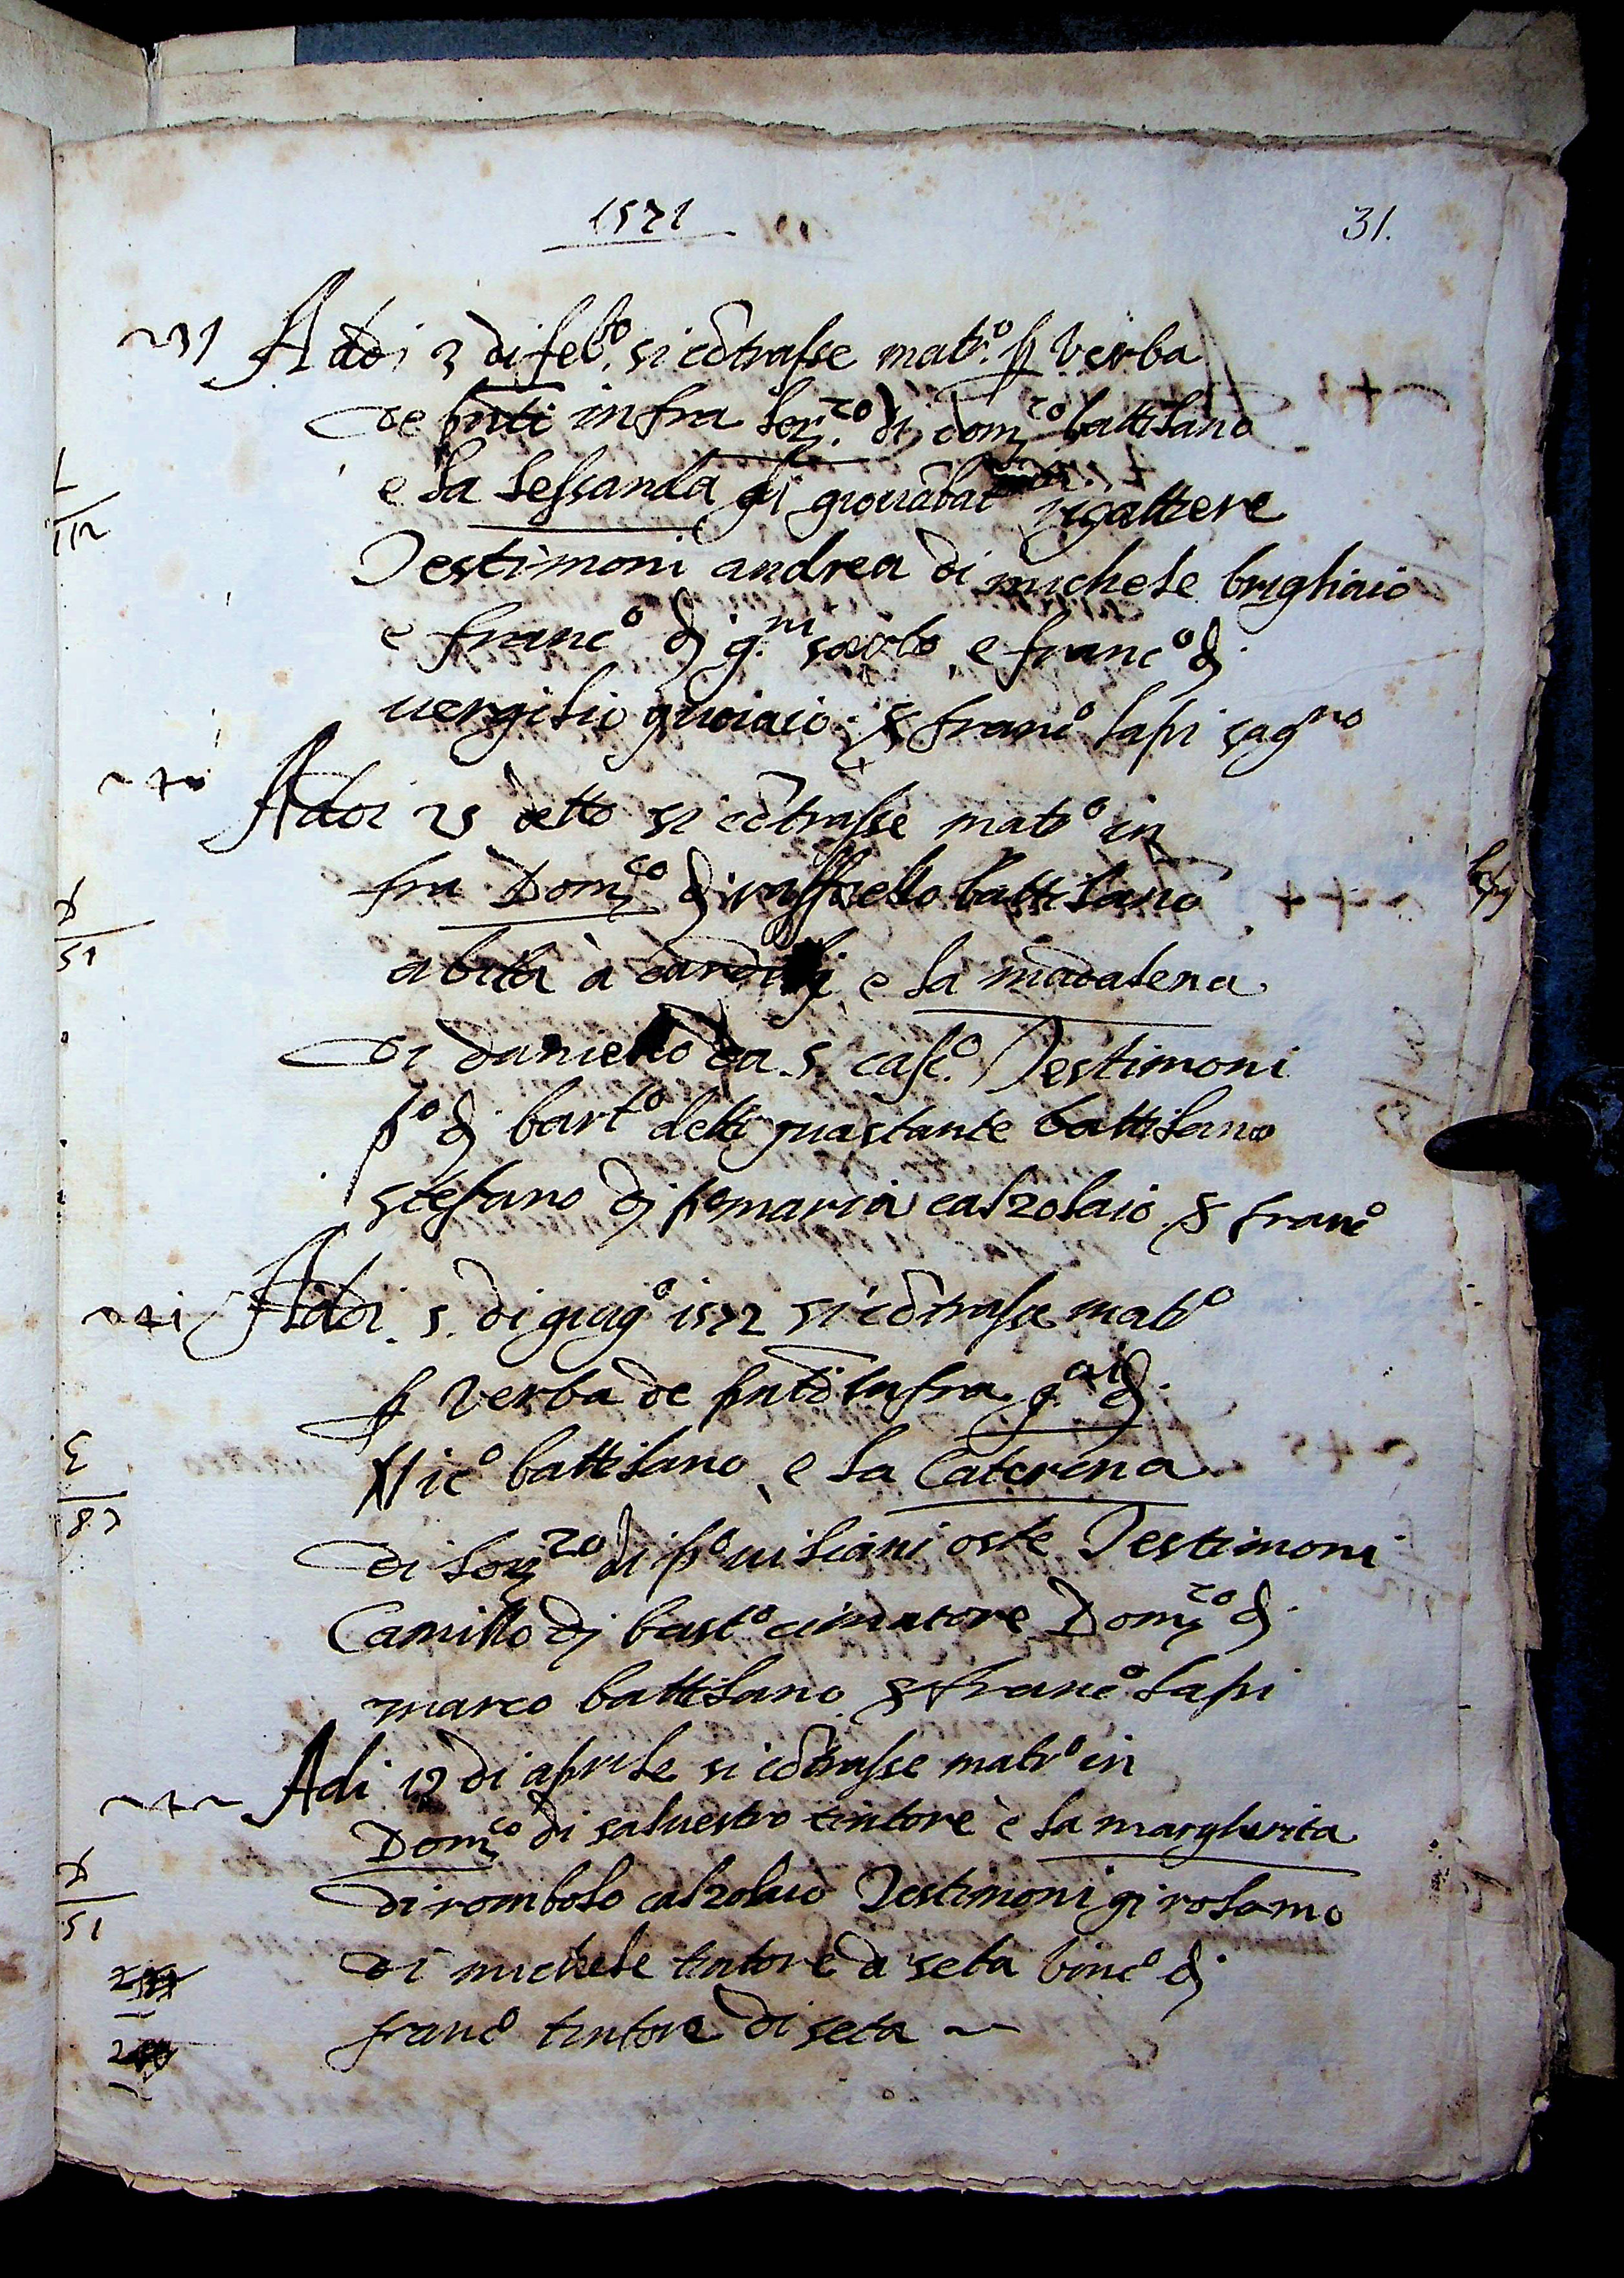 1571
31.
Adi 3 di feb.º si cōtrasse matr.º p verba
de pnti infra lor.zo di dom.co battilano
e la lessandra di giouābat rigattiere
Testimoni andrea di michele brigliaio
e franc.º di g.ni e franc.º di
uergilio quoiaio. franc.º lapi
Adi 25 detto si cōtrasse matr.º in
fra Dom.co di raffaello battilano
abita à e la madalena
di daniello da S. casc.º Testimoni
p.º di bart.º detto guastante battilano
stefano di p.º maria calzolaio franc.º
Adi 5 di giug.º 1572 si cōtrasse matr.º
p verba de pnti infra g. di
Nic.º battilano, e la Caterina
di lor.zo di p.º uiliani oste Testimoni
Camillo di bast.º cimatore Dom.co di
marco battilano franc.º lapi
Adi 12 di aprile si cōtrasse matr.º in
Dom.co di saluestro tintore e la margherita
di rombolo calzolaio Testimoni girolamo
di michele tintore di seta uinc.º di
franc.º tintore di seta